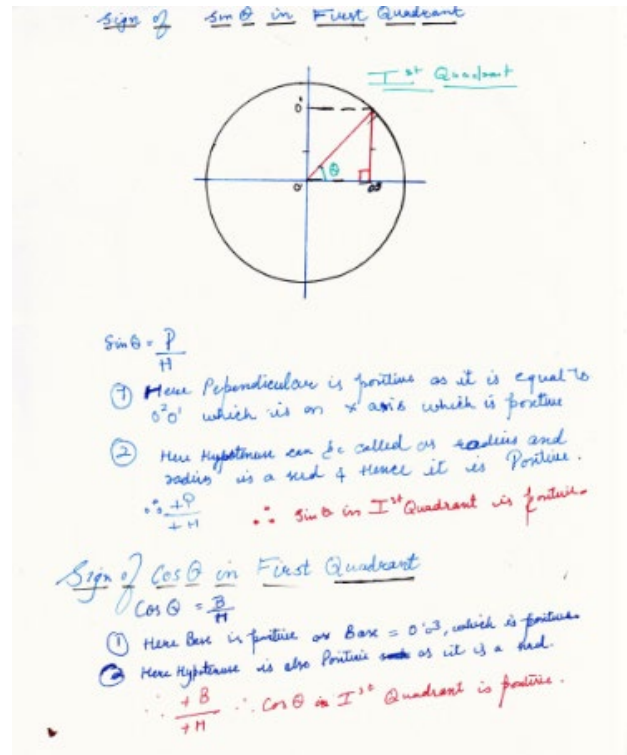 Sign of Sin θ in First Quadrant
I st Quadrant
0'
θ
0
03
Sinθ = P
H
① Here Pependicular is positive as it is equal to
0²0' which is on x axis which is positive
② Here Hypotenuse can be called as radius and
radius is a rod & Hence it is Positive.
∴ +P
+H
∴ Sin θ in I st Quadrant is positive.
Sign of Cos θ in First Quadrant
Cos θ = B
H
① Here Base is positive as Base = 0'03, which is positive
② Here Hypotenuse is also Positive as it is a rod.
∴ +B
+H
∴ Cos θ in I st Quadrant is positive.